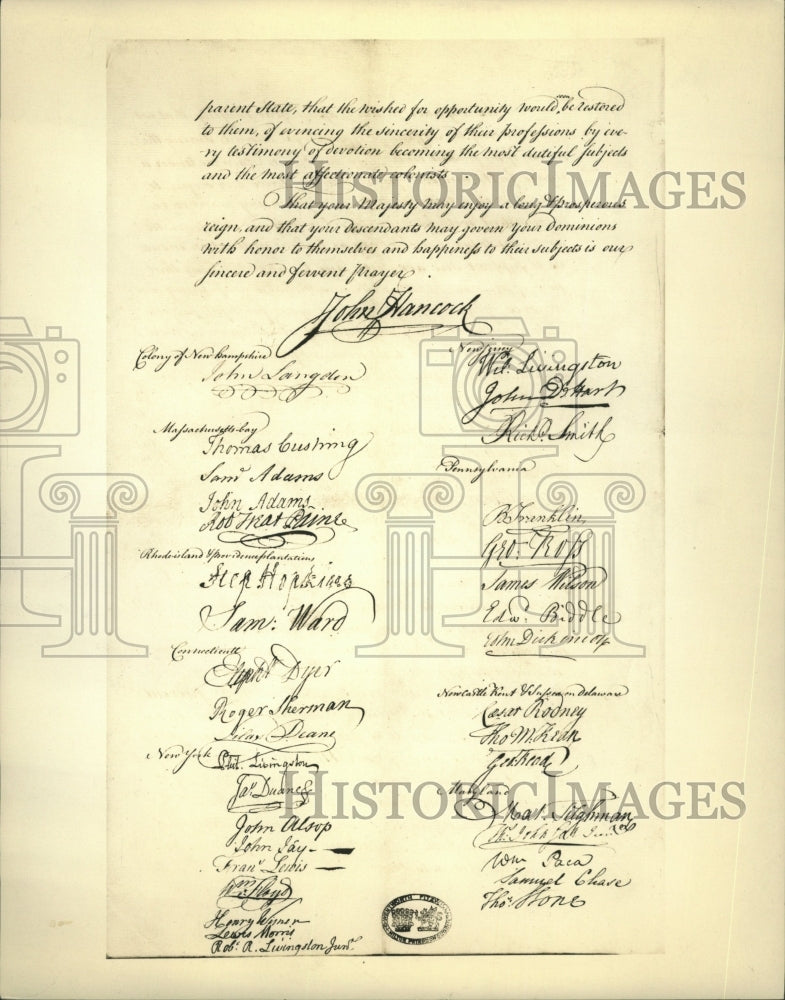 parent State, that the wished for opportunity would soon be restored
to them, of evincing the sincerity of their professions by eve-
ry testimony of devotion becoming the most dutiful subjects
and the most affectionate colonists.
That your Majesty may enjoy a long & prosperous
reign, and that your descendants may govern your dominions
with honor to themselves and happiness to their subjects is our
sincere and fervent prayer.
HISTORIC IMAGES
John Hancock
Colony of New hampshire
John Langdon
Massachusetts-bay
Thomas Cushing
Saml Adams
John Adams
Robt Treat Paine
Rhode-island & providence plantations
Step Hopkins
Sam: Ward
Connecticutt
Elipht Dyer
Roger Sherman
Silas Deane
New York
Phil. Livingston
Jas Duane
John Alsop
John Jay
Frans Lewis
Wm Floyd
Henry Wisner
Lewis Morris
Robt R. Livingston Junr
New Jersey
Wil. Livingston
John D Hart
Richd Smith
Pennsylvania
B Franklin
Geo: Ross
James Wilson
Edwd Biddle
John Dickinson
Newcastle Kent & Sussex on delaware
Caesar Rodney
Tho M:Kean
Geo Read
Maryland
Mat. Tilghman
Wm Paca
Samuel Chase
Thos Stone
HISTORIC IMAGES